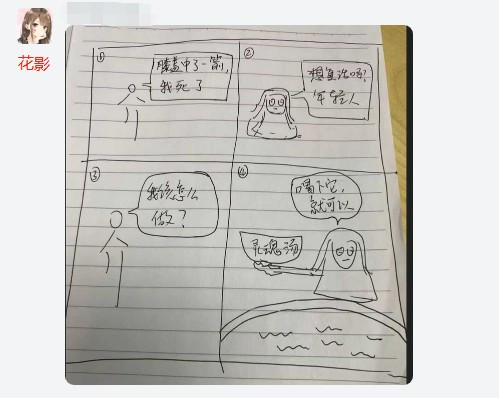 花影
①
膝盖中了一箭,
我死了
②
想复活吗?
年轻人
③
我该怎么
做?
④
喝下它,
就可以
灵魂汤